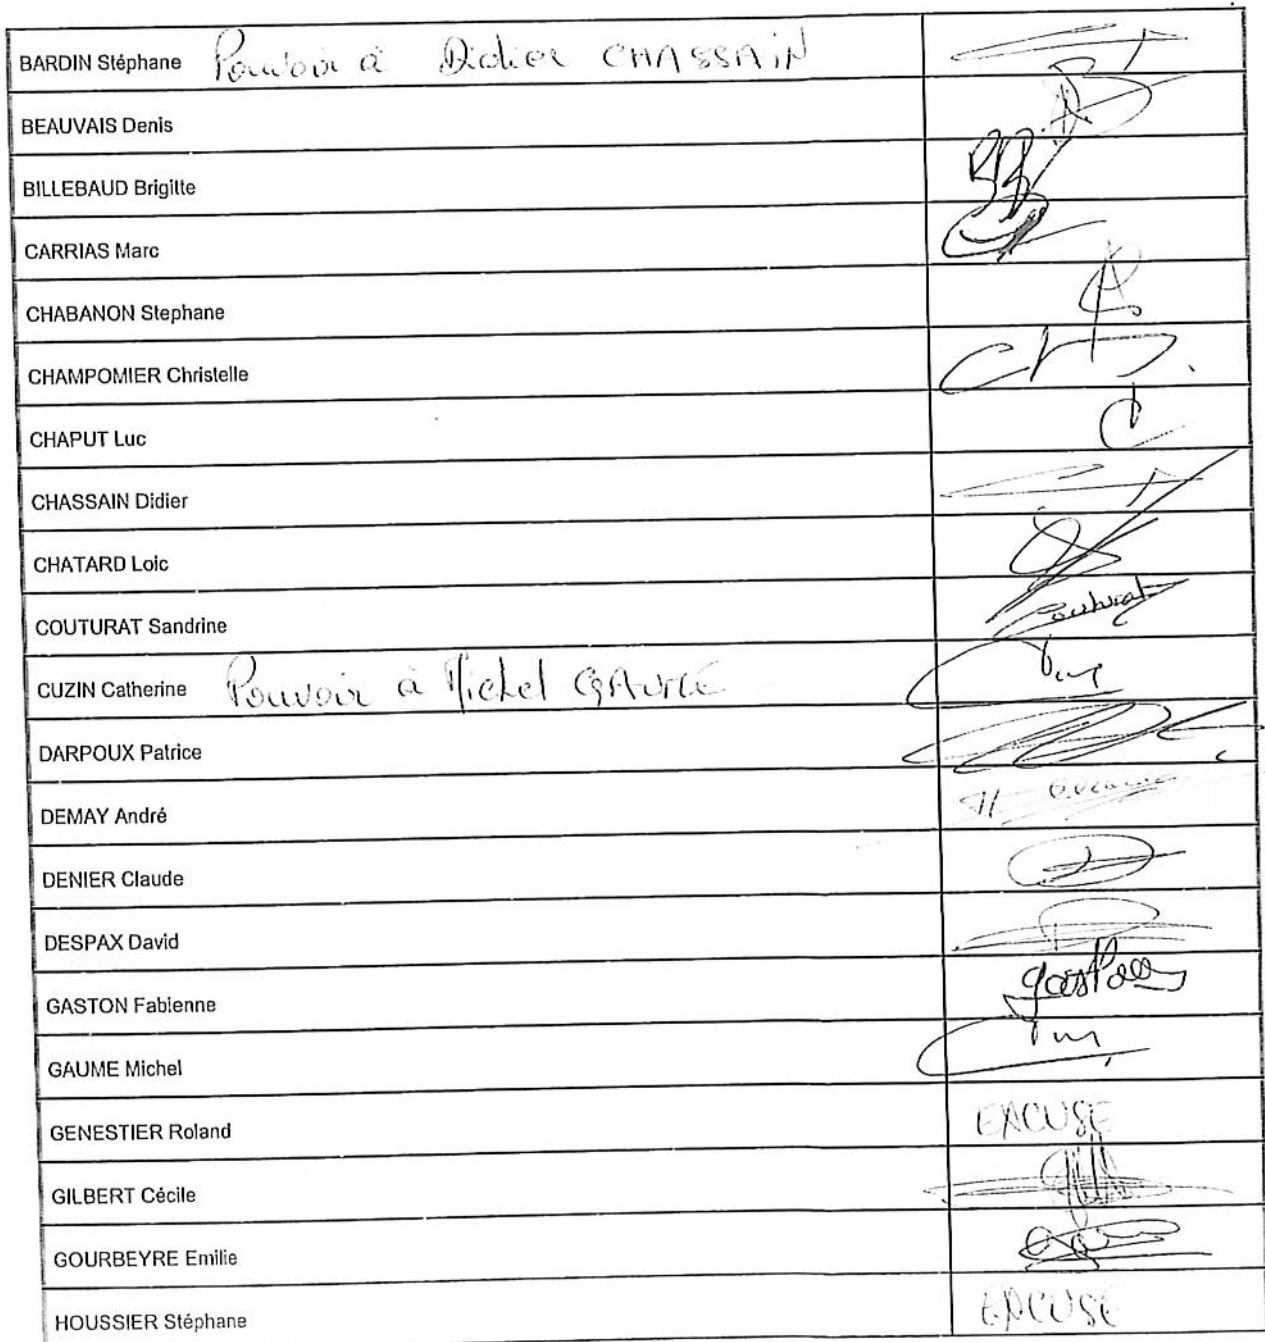 BARDIN Stéphane Pouvoir à Didier CHASSAIN
BEAUVAIS Denis
BILLEBAUD Brigitte
CARRIAS Marc
CHABANON Stephane
CHAMPOMIER Christelle
CHAPUT Luc
CHASSAIN Didier
CHATARD Loic
COUTURAT Sandrine Couturat
CUZIN Catherine Pouvoir à Michel GAUME
DARPOUX Patrice
DEMAY André
DENIER Claude
DESPAX David
GASTON Fabienne gaston
GAUME Michel
GENESTIER Roland EXCUSE
GILBERT Cécile
GOURBEYRE Emilie
HOUSSIER Stéphane EXCUSE